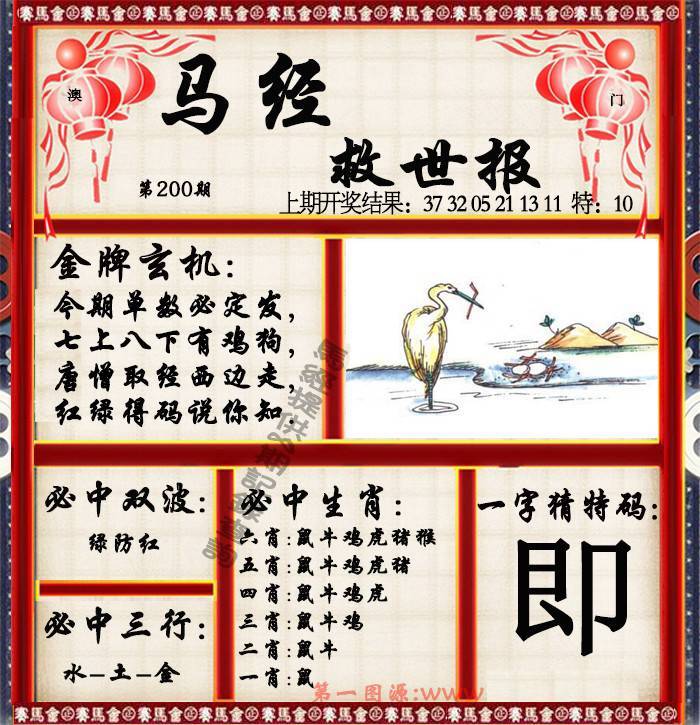 賽馬會金賽馬會金賽馬會金賽馬會金賽馬會金賽馬會金
澳
门
马经
救世报
第200期
上期开奖结果：37 32 05 21 13 11 特：10
金牌玄机：
今期单数必定发，
七上八下有鸡狗，
唐僧取经西边走，
红绿得码说你知．
必中双波：
绿防红
必中三行：
水–土–金
必中生肖：
六肖：鼠牛鸡虎猪猴
五肖：鼠牛鸡虎猪
四肖：鼠牛鸡虎
三肖：鼠牛鸡
二肖：鼠牛
一肖：鼠
一字猜特码：
即
第一图源:www